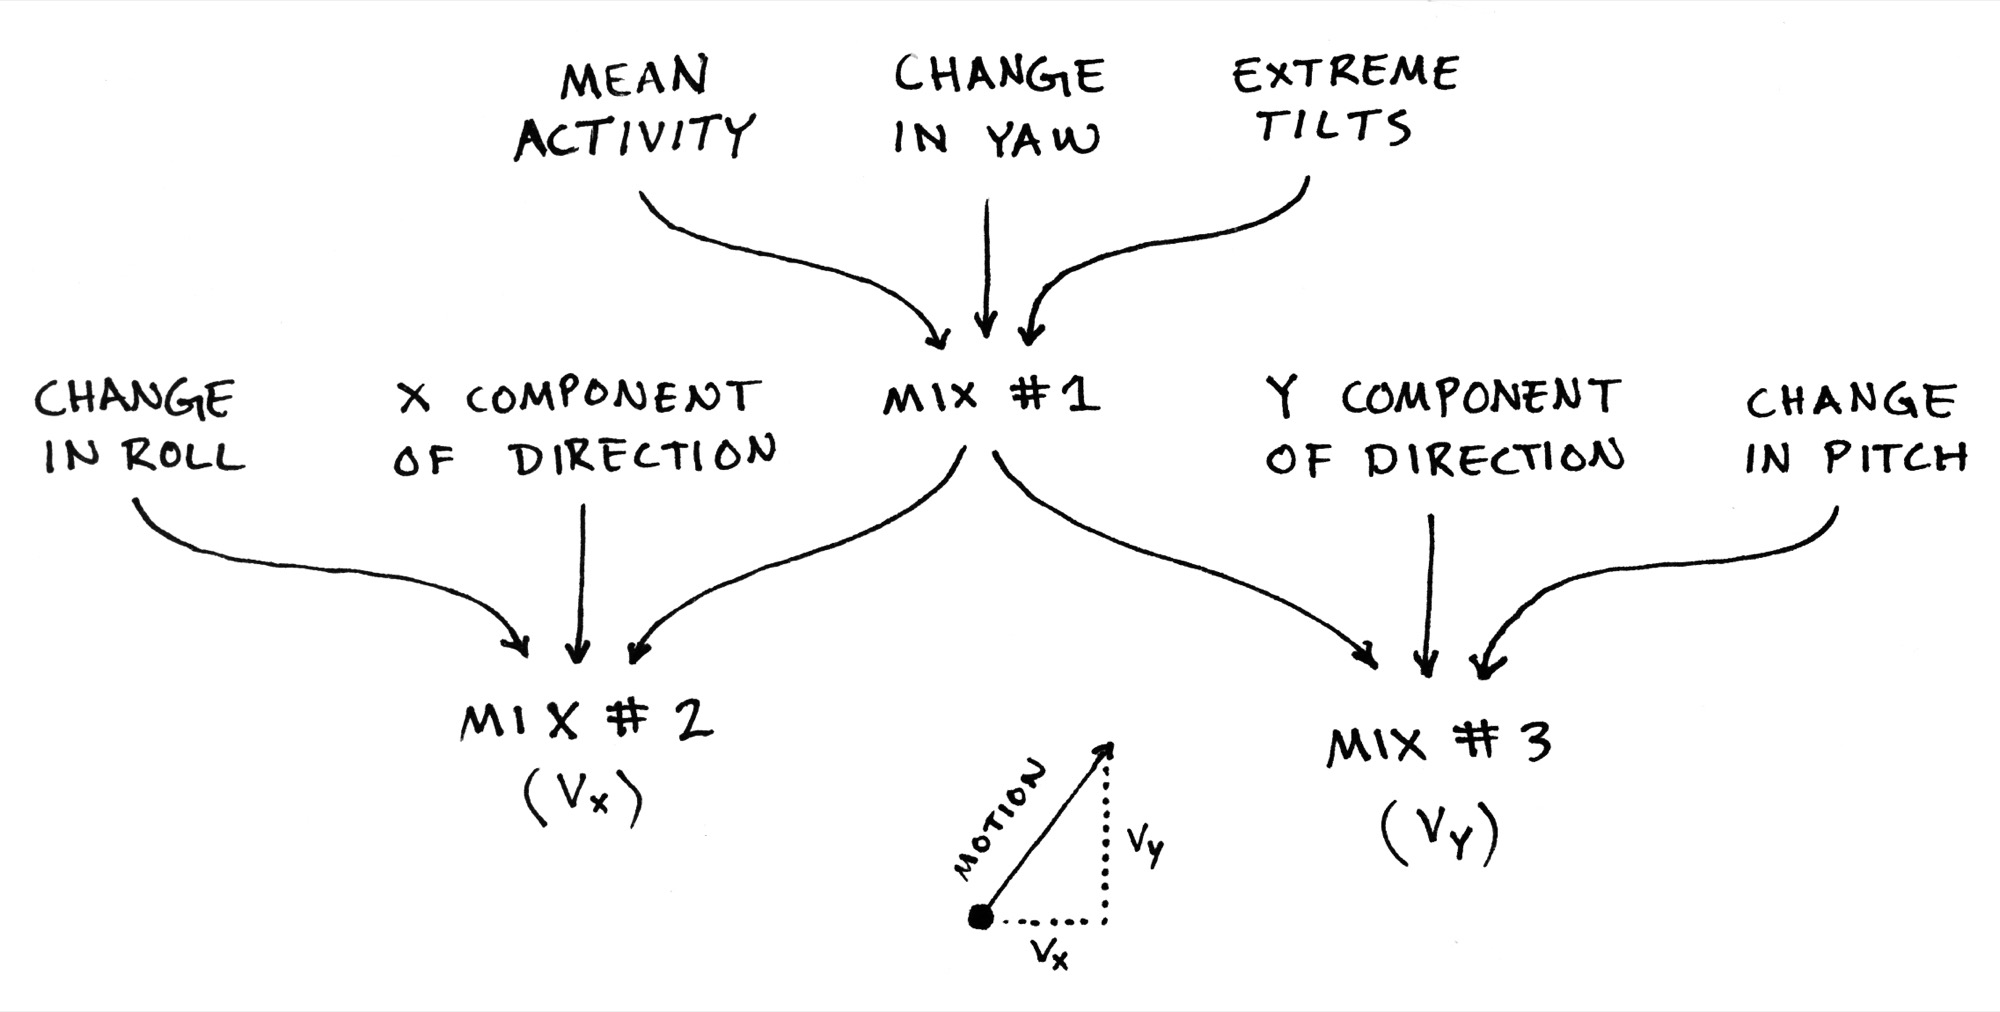 MEAN
ACTIVITY
CHANGE
IN YAW
EXTREME
TILTS
CHANGE
IN ROLL
X COMPONENT
OF DIRECTION
MIX #1
Y COMPONENT
OF DIRECTION
CHANGE
IN PITCH
MIX #2
(Vx)
MIX #3
(Vy)
MOTION
Vy
Vx